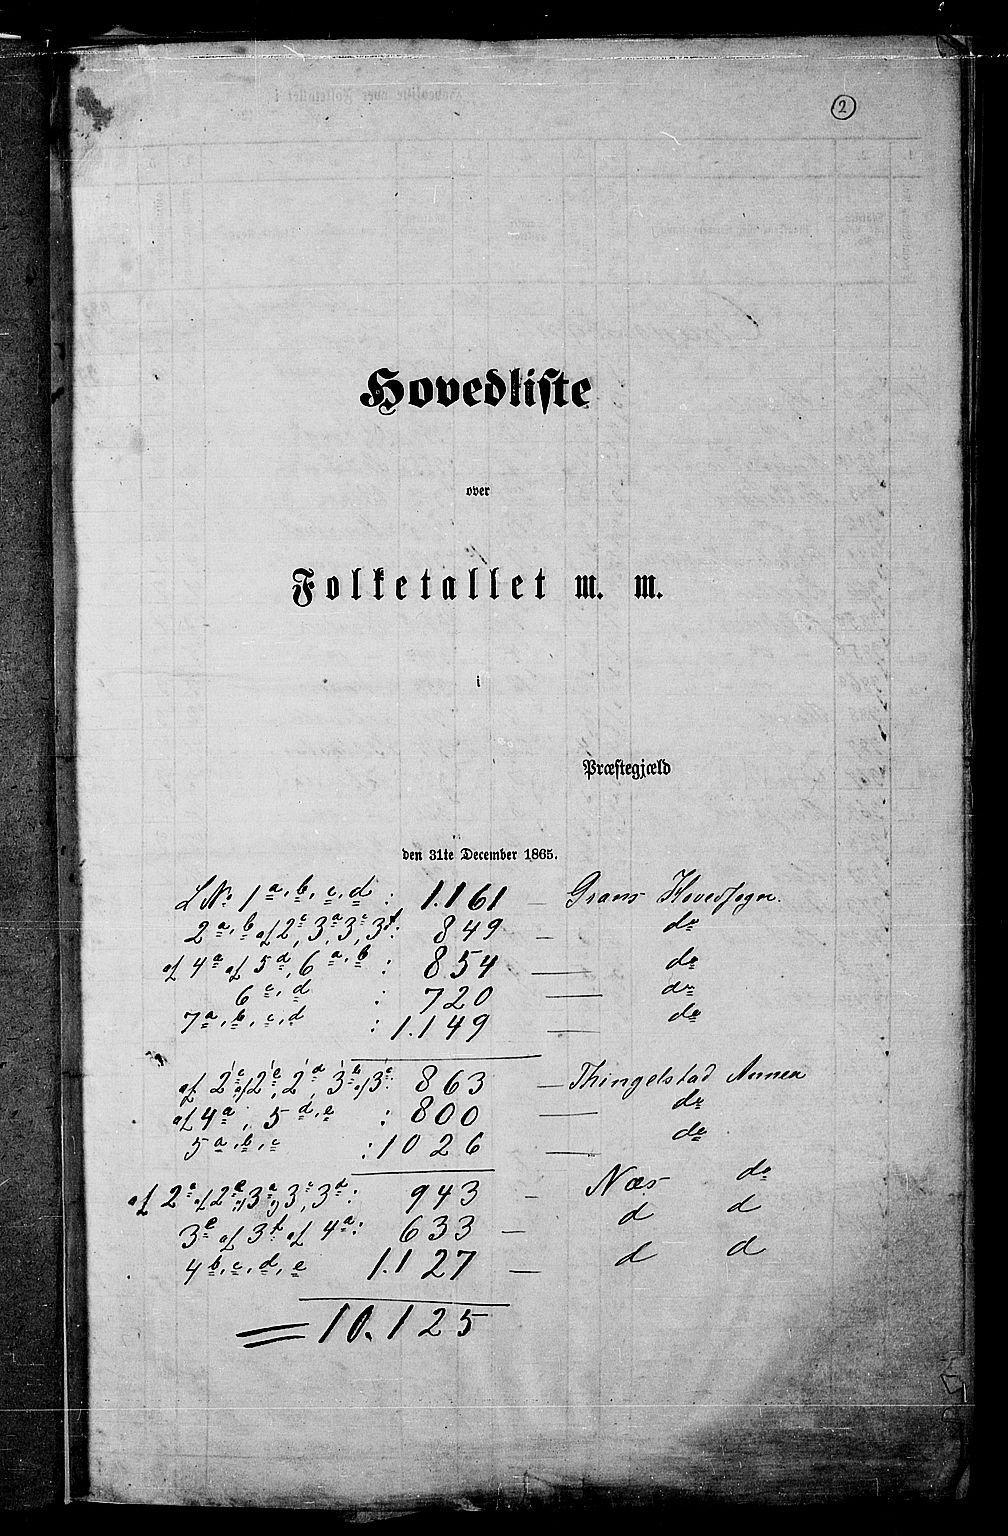 2
Hovedliste
over
Folketallet m. m.
i
Præstegjæld
den 31te December 1865.
L No 1 a, b, c, d : 1.161 — Grans Hovedsogn.
2 a, b af 2 c, 3 a, 3 c, 3 f : 849 — do
af 4 a af 5 d, 6 a, b : 854 — do
6 c, d : 720 — do
7 a, b, c, d : 1.149 — do
af 2 c af 2 e, 2 d, 3 b af 3 c : 863 — Thingelstad Annex
af 4 a, 5 d, e : 800 — do
5 a, b, c : 1026 — do
af 2 c af 2 e, 3 a, 3 c, 3 d : 943 — Næs do
3 e af 3 f af 4 a : 633 — d d
4 b, c, d, e 1.127 — d d
10.125